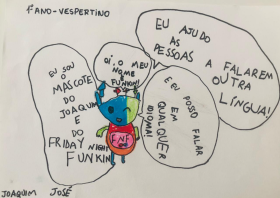 1º ANO-VESPERTINO
EU AJUDO
AS
PESSOAS A FALAREM
OUTRA
LÍNGUA!
OI, O MEU
NOME É
FUNKIN!
EU SOU
O
MASCOTE
DO
JOAQUIM
E DO
FRIDAY NIGHT
FUNKIN
E EU POSSO FALAR
EM
QUALQUER
IDIOMA!
FNF
JOAQUIM JOSÉ